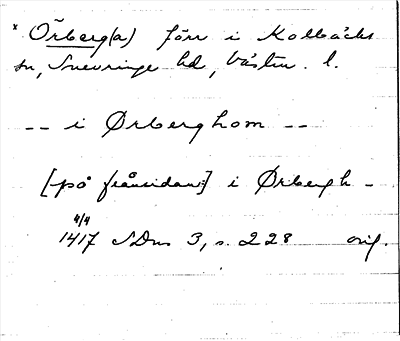 * Örberg(a) förr i Kolbäcks
sn, Snevringe hd, Västm. l.
-- i Ørberghom --
[på frånsidan:] i Ørbergh -
4/4
1417 SDns 3, s. 228 orig.